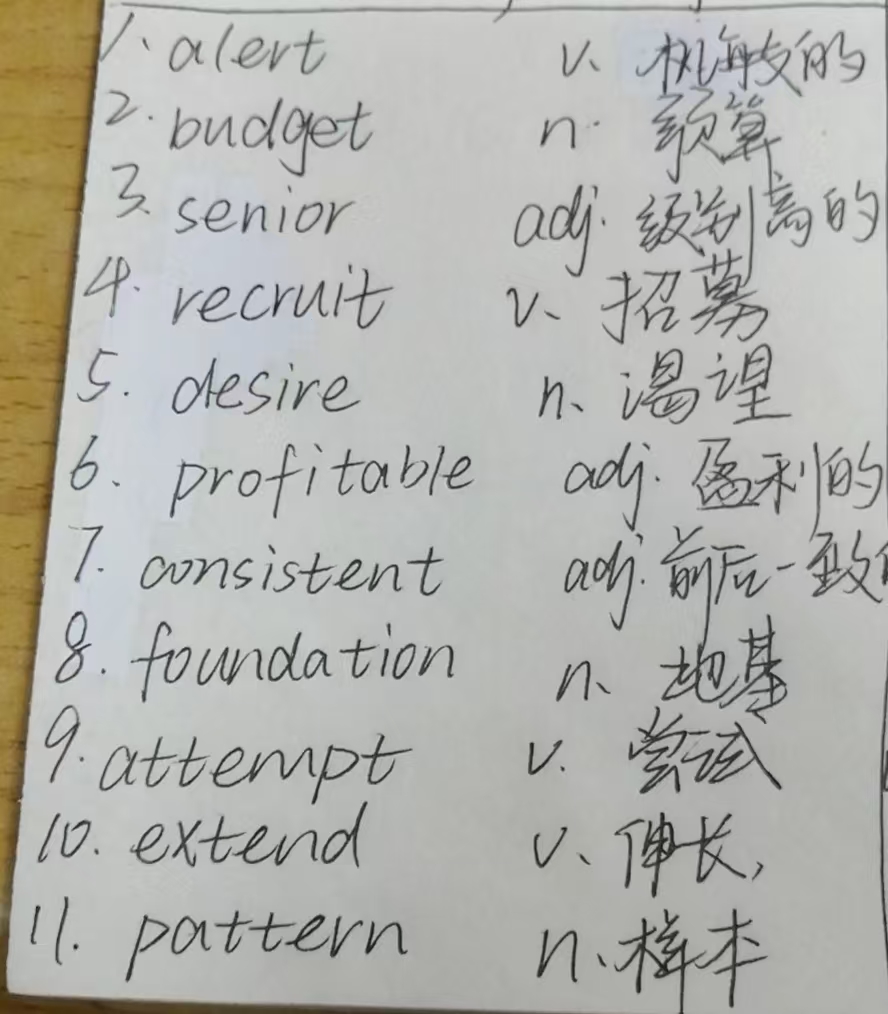 1、alert v、机敏的
2. budget n. 预算
3、senior adj. 级别高的
4. recruit v、招募
5. desire n、渴望
6. profitable adj. 盈利的
7. consistent adj. 前后一致
8. foundation n、地基
9. attempt v. 尝试
10. extend v、伸长,
11. pattern n、样本